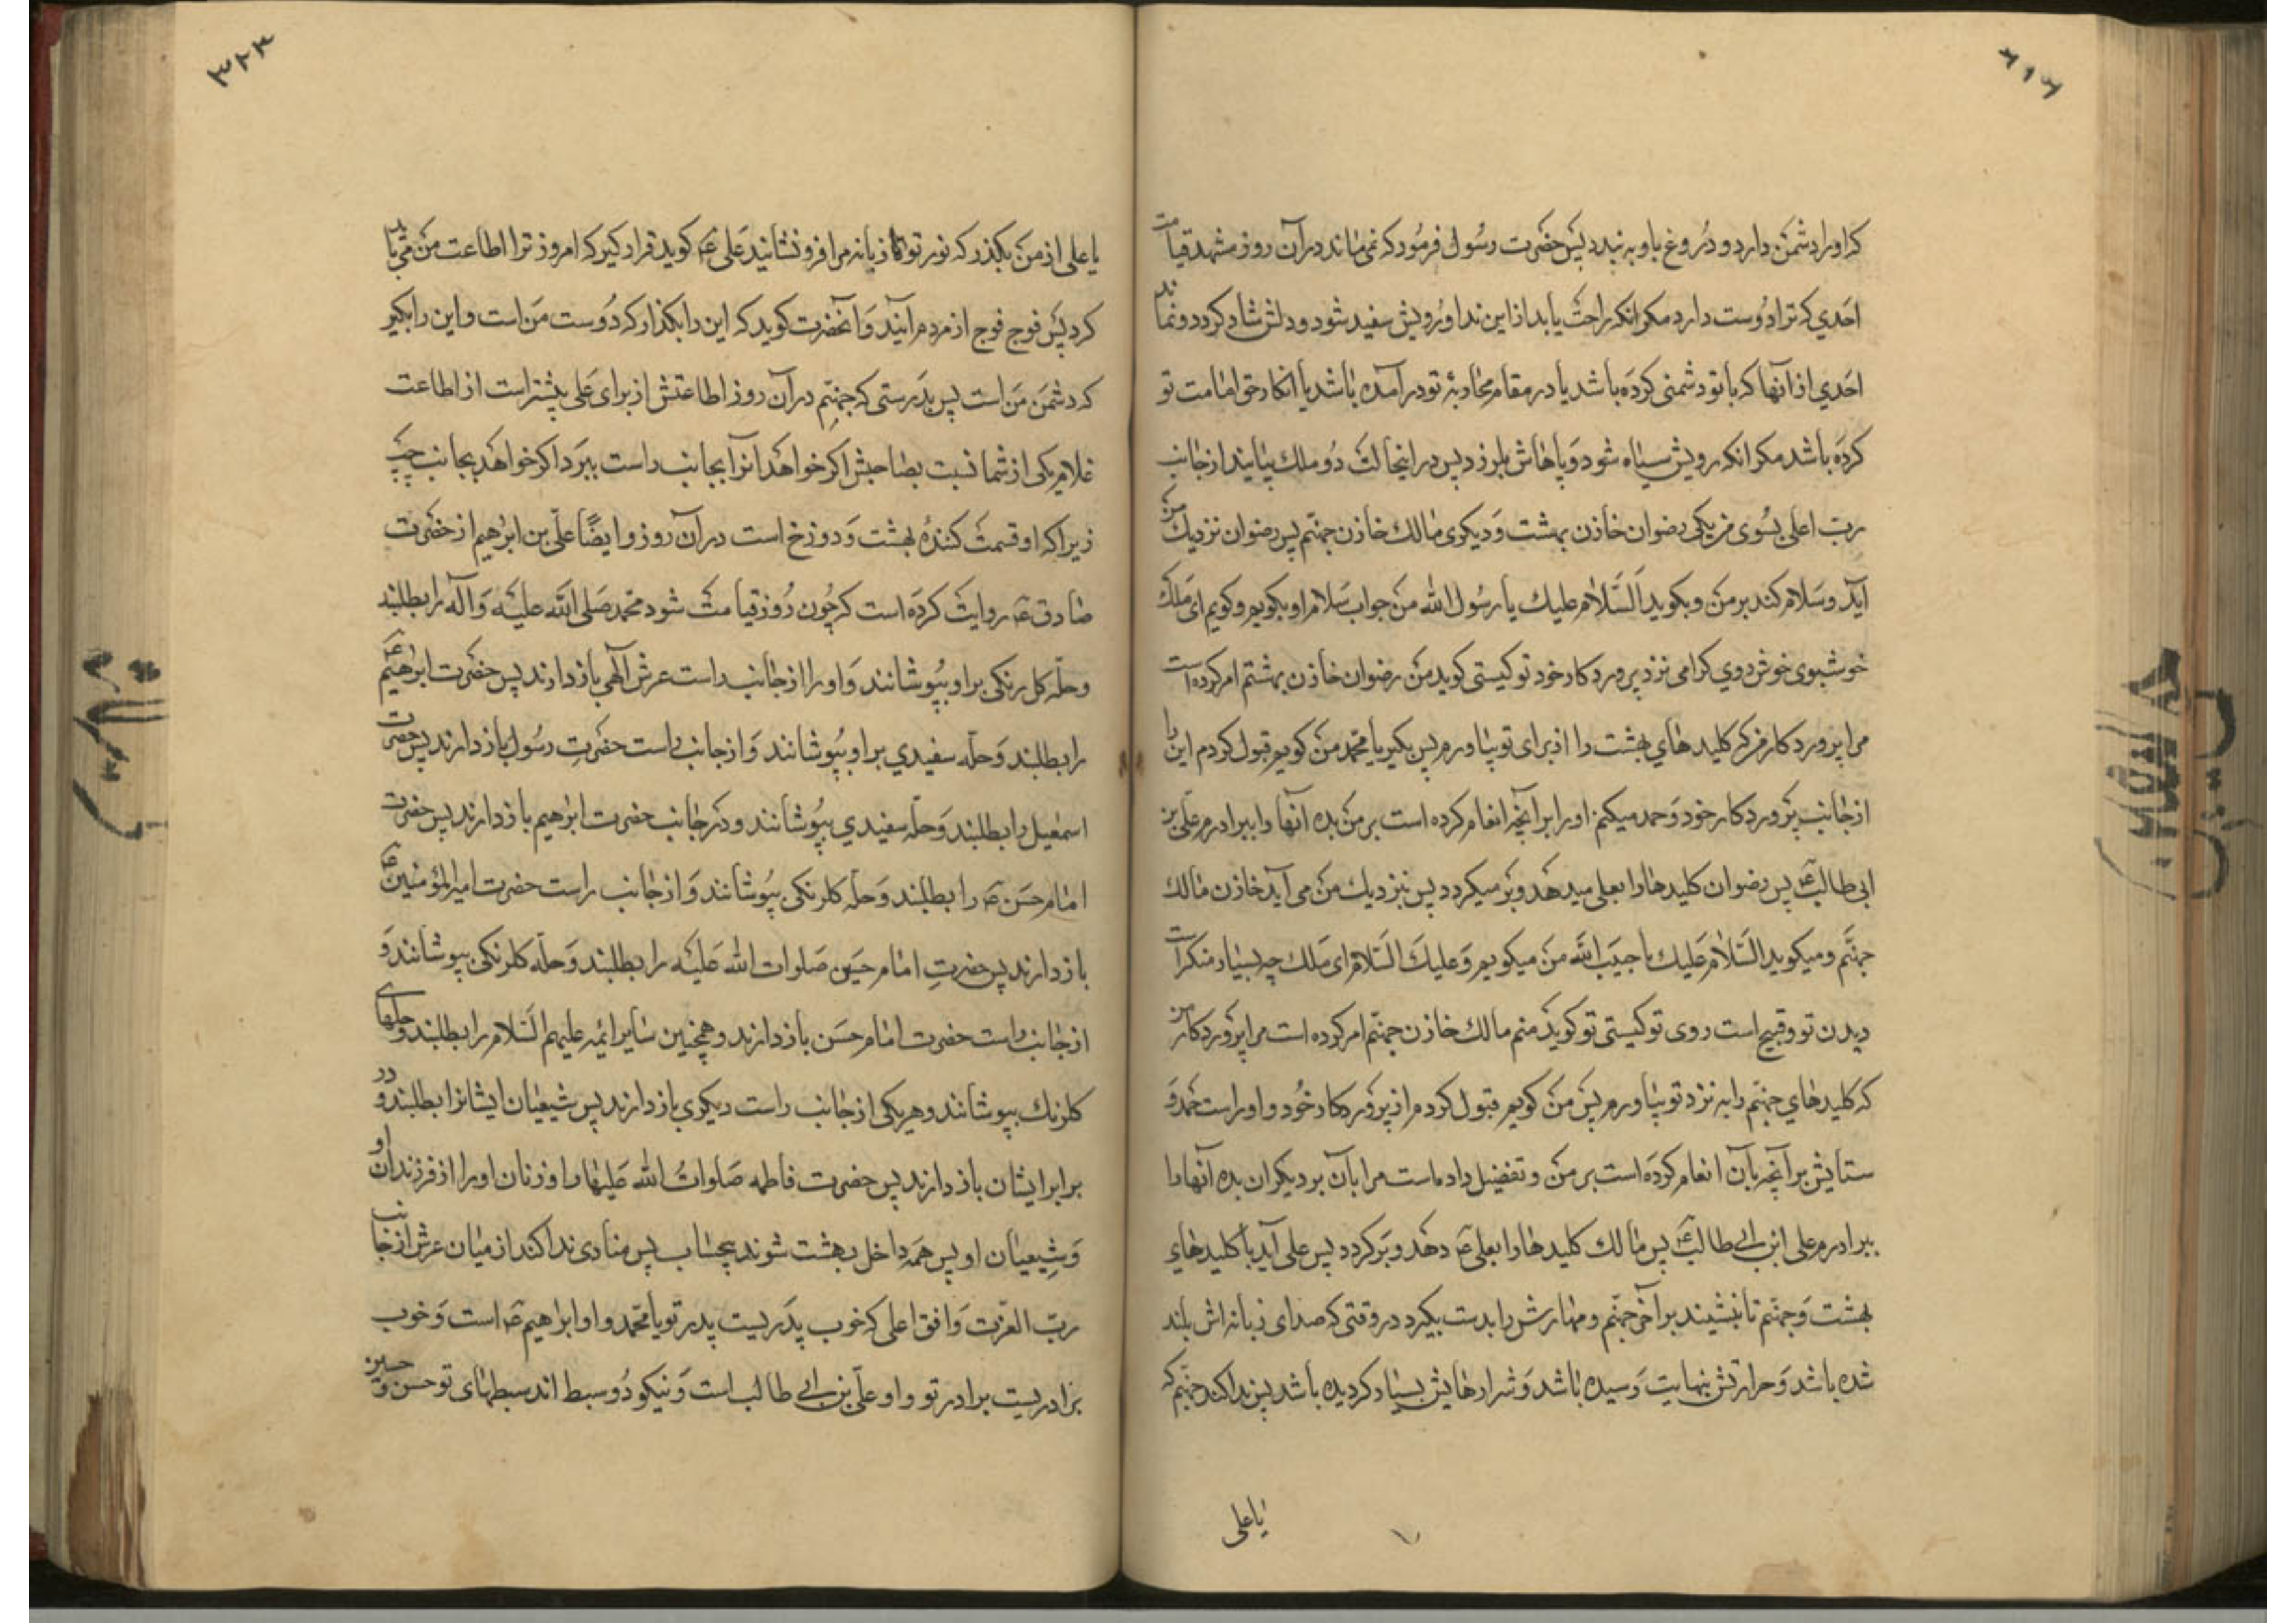 که او را دشمن دارد و دروغ باو به بندد پس حضرت رسول فرمود که نمی‌ماند در آن روز مشهد قیامت
احدی که ترا دوست دارد مکر انکه راحت یابد از این ندا و رویش سفید شود و دلش شاد کردد و نماند
احدی از آنها که با تو دشمنی کرده باشد یا در مقام محاربهٔ تو در آمده باشد یا انکار حق امامت تو
کرده باشد مکر انکه رویش سیاه شود و پاهاش بلرزد پس در اینحالت دو ملک بیایند از جانب
رب اعلی بسوی من یکی رضوان خازن بهشت و دیکری مالک خازن جهنم پس رضوان نزدیک من
آید و سلام کند بر من و بکوید السلام علیک یا رسول الله من جواب سلام او بکویم و کویم ای ملک
خوشبوی خوش روی کرامی نزد پروردکار خود تو کیستی کوید من رضوان خازن بهشتم امر کرده است
مرا پروردکار من که کلید های بهشت را از برای تو بیاورم پس بکیر یا محمد من کویم قبول کردم این را
از جانب پروردکار خود و حمد میکنم او را بر آنچه انعام کرده است بر من بده آنها را ببرادرم علی بن
ابی طالب ع پس رضوان کلیدها را بعلی میدهد و بر میکردد پس بنزدیک من می آید خازن مالک
جهنم و میکوید السلام علیک یا حبیب الله من میکویم و علیک السلام ای ملک چه بسیار منکر است
دیدن تو و قبیح است روی تو کیستی تو کوید منم مالک خازن جهنم امر کرده است مرا پروردکار من
که کلیدهای جهنم را به نزد تو بیاورم پس من کویم قبول کردم از پروردکار خود و او راست حمد و
ستایش بر آنچه بآن انعام کرده است بر من و تفضیل داده است مرا بآن بر دیکران بده آنها را
ببرادرم علی ابن ابی طالب ع پس مالک کلیدها را بعلی ع دهد و بر کردد پس علی آید با کلیدهای
بهشت و جهنم تا بنشیند بر آخر جهنم و مهارش را بدست بکیرد در وقتی که صدای زبانه اش بلند
شده باشد و حرارتش بنهایت رسیده باشد و شرارهایش بسیار کردیده باشد پس ندا کند جهنم که
یا علی
۳۲۳
یا علی از من بکذر که نور تو زبانه مرا فرو نشانید علی ع کوید قرار کیر که امروز ترا اطاعت من می باید
کرد پس فوج فوج از مردم آیند و آنحضرت کوید که این را بکذار که دوست من است و این را بکیر
که دشمن من است پس بدرستی که جهنم در آن روز اطاعتش از برای علی بیشتر است از اطاعت
غلام یکی از شما نسبت بصاحبش اکر خواهد انرا بجانب راست ببرد و اکر خواهد بجانب چپ
زیرا که او قسمت کنندهٔ بهشت و دوزخ است در آن روز و ایضًا علی بن ابرهیم از حضرت
صادق ع روایت کرده است که چون روز قیامت شود محمد صلی الله علیه و آله را بطلبند
و حله کل رنکی بر او بپوشانند و او را از جانب راست عرش الهی باز دارند پس حضرت ابرهیم ع
را بطلبند و حله سفیدی بر او بپوشانند و از جانب راست حضرت رسول باز دارند پس حضرت
اسمعیل را بطلبند و حله سفیدی بپوشانند و در جانب حضرت ابرهیم باز دارند پس حضرت
امام حسن ع را بطلبند و حله کلرنکی بپوشانند و از جانب راست حضرت امیرالمؤمنین ع
باز دارند پس حضرت امام حسین صلوات الله علیه را بطلبند و حله کلرنکی بپوشانند و
از جانب راست حضرت امام حسن باز دارند و همچنین سایر ائمه علیهم السلام را بطلبند و حلهای
کلرنک بپوشانند و هر یکی از جانب راست دیکری باز دارند پس شیعیان ایشانرا بطلبند و در
برابر ایشان باز دارند پس حضرت فاطمه صلوات الله علیها را و زنان او را از فرزندان او
و شیعیان او پس همه داخل بهشت شوند بیحساب پس منادی ندا کند از میان عرش از جانب
رب العزت و افق اعلی که خوب پدریست پدر تو یا محمد و او ابراهیم ع است و خوب
برادریست برادر تو و او علی بن ابی طالب است و نیکو دو سبط اند سبطهای تو حسن و حسین